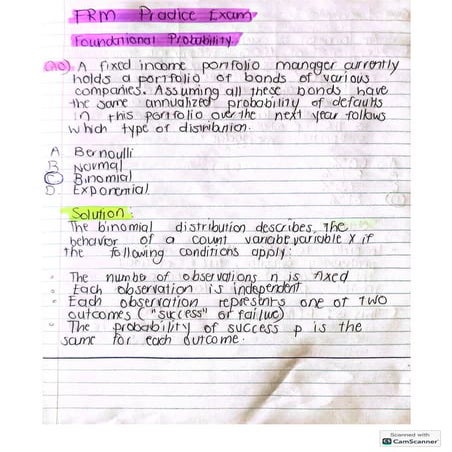 FRM Practice Exam
Foundational Probability.
20) A fixed income portfolio manager currently
holds a portfolio of bonds of various
companies. Assuming all these bonds have
the same annualized probability of defaults
in this portfolio over the next year follows
which type of distribution.
A Bernoulli
B Normal
C Binomial
D. Exponential
Solution:
The binomial distribution describes the
behavior of a count variable variable X if
the following conditions apply:
The number of observations n is fixed
Each observation is independent
Each observation represents one of two
outcomes ("success" or failure)
The probability of success p is the
same for each outcome.
Scanned with
CS CamScanner